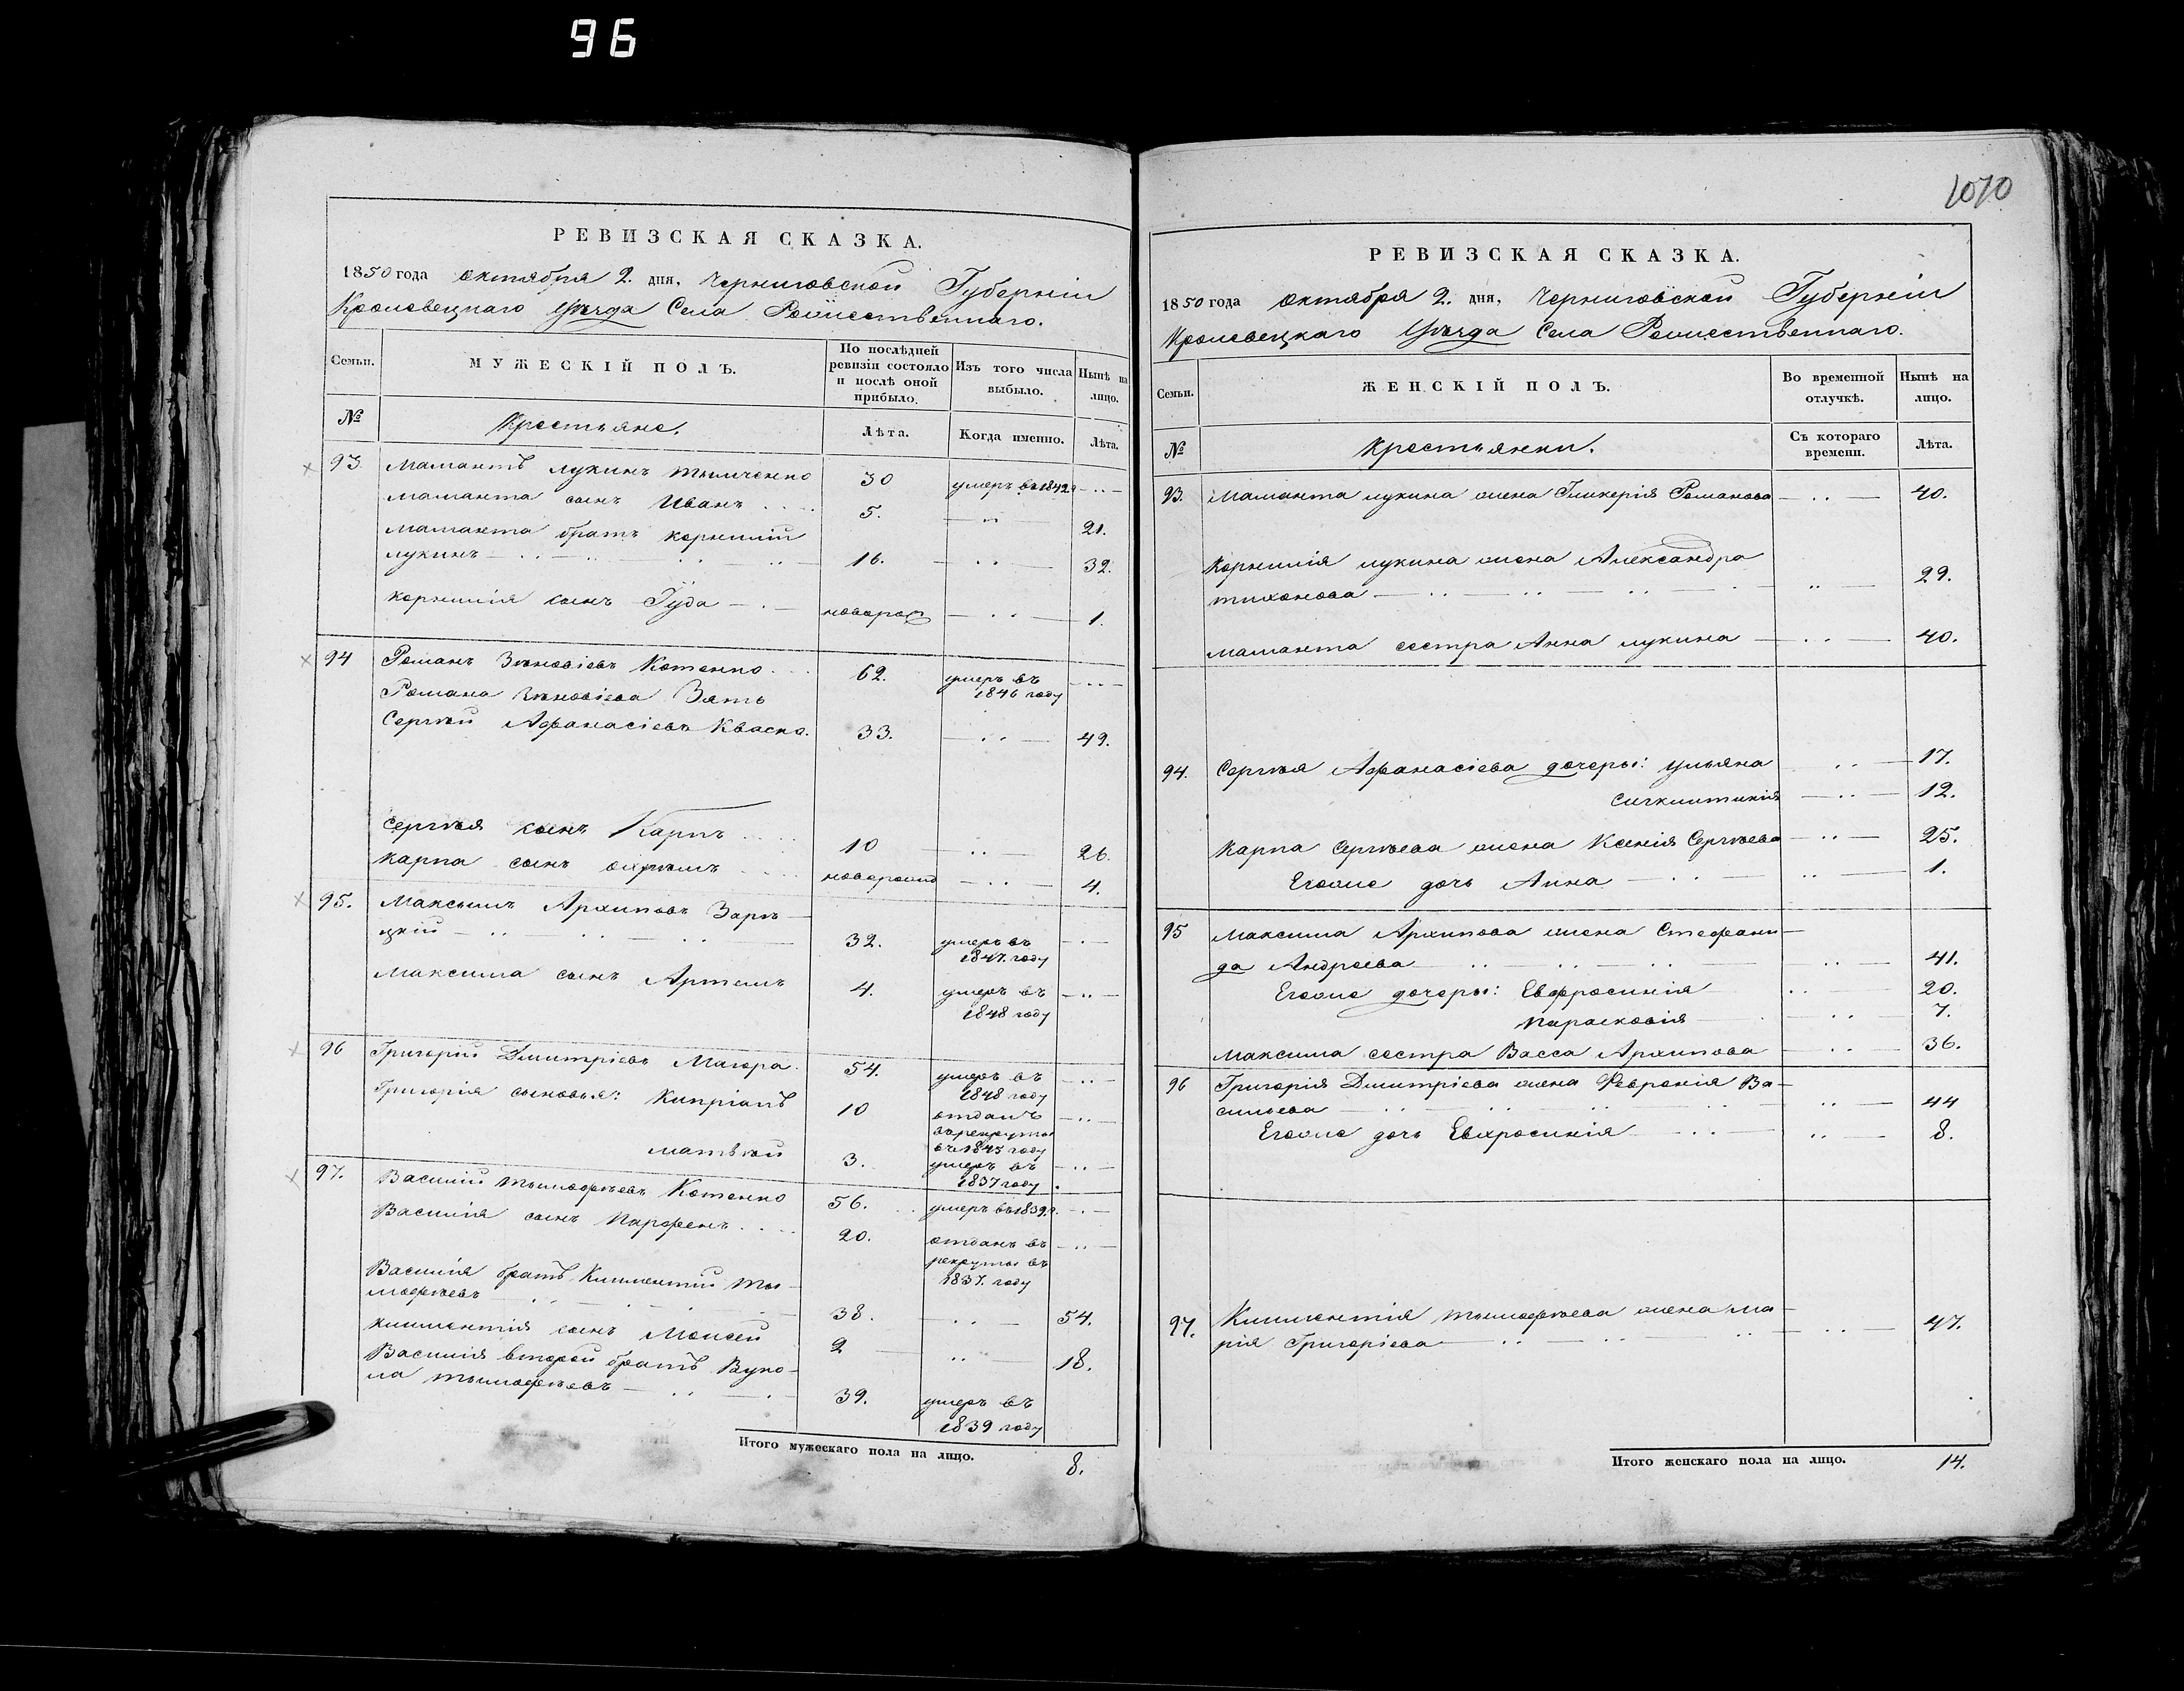 96
РЕВИЗСКАЯ СКАЗКА.
1850 года октября 2. дня, Черниговской Губерніи
Кролевецкаго Уѣзда Села Рожественнаго.
Семьи.
МУЖЕСКІЙ ПОЛЪ.
По послѣдней ревизіи состояло и послѣ оной прибыло.
Изъ того числа выбыло.
Нынѣ на лицо.
№
Крестьяне.
Лѣта.
Когда именно.
Лѣта.
93. Мамантъ Лукинъ Тымченко 30 умеръ въ 1842 г
Маманта сынъ Иванъ 5. 21.
Маманта братъ Корнилій
Лукинъ 16. 32.
Корнилія сынъ Гуда новорож 1.
94 Романъ Зѣновіевъ Котенко 62. умеръ въ
1846 году
Романа Зѣновіева Зять
Сергѣй Афанасіевъ Кваско. 33. 49.
Сергѣя сынъ Карпъ 10 26.
Карпа сынъ новорожд 4.
95. Максимъ Архиповъ Зарѣ-
цкій 32. умеръ въ
1847. году
Максима сынъ Артемъ 4. умеръ въ
1848 году
96 Григорій Дмитріевъ Магора. 54. умеръ въ
1848 году
Григорія сыновья: Кипріанъ 10 отданъ
въ рекруты
въ 1845 году
Матвѣй 3. умеръ въ
1837 году
97. Василій Тымофѣевъ Котенко 56. умеръ въ 1839 г.
Василія сынъ Парфенъ 20. отданъ въ
рекруты въ
1837. году
Василія братъ Климентій Ты-
мофѣевъ 38. 54.
Климентія сынъ Моисей 2 18.
Василія второй братъ Вуко-
ла Тымофѣевъ 39. умеръ въ
1839 году
Итого мужескаго пола на лицо. 8.
1070
РЕВИЗСКАЯ СКАЗКА.
1850 года октября 2. дня, Черниговской Губерніи
Кролевецкаго Уѣзда Села Рожественнаго.
Семьи.
ЖЕНСКІЙ ПОЛЪ.
Во временной отлучкѣ.
Нынѣ на лицо.
№
Крестьянки.
Съ котораго времени.
Лѣта.
93. Маманта Лукина жена Гликерія Романова 40.
Корнилія Лукина жена Александра
Тихонова 29.
Маманта сестра Анна Лукина 40.
94. Сергѣя Афанасіева дочеры: Ульяна 17.
Сигклитикія 12.
Карпа Сергѣева жена Ксенія Сергѣева 25.
Егоже дочь Анна 1.
95 Максима Архипова жена Стефани-
да Андреева 41.
Егоже дочеры: Евфросинія 20.
Парасковія 7.
Максима сестра Васса Архипова 36.
96 Григорія Дмитріева жена Февронія Ва-
сильева 44
Егоже дочь Евфросинія 8.
97. Климентія Тымофѣева жена Ма-
рія Григоріева 47.
Итого женскаго пола на лицо. 14.